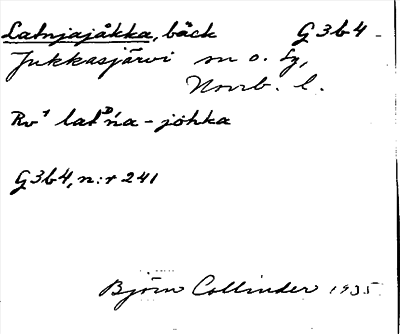 Latnjajåkka, bäck G 3 b 4
Jukkasjärvi sn o. sg,
Norrb. l.
Rv¹ latᴰńa-jåhka
G3b4, n:r 241
Björn Collinder 1935